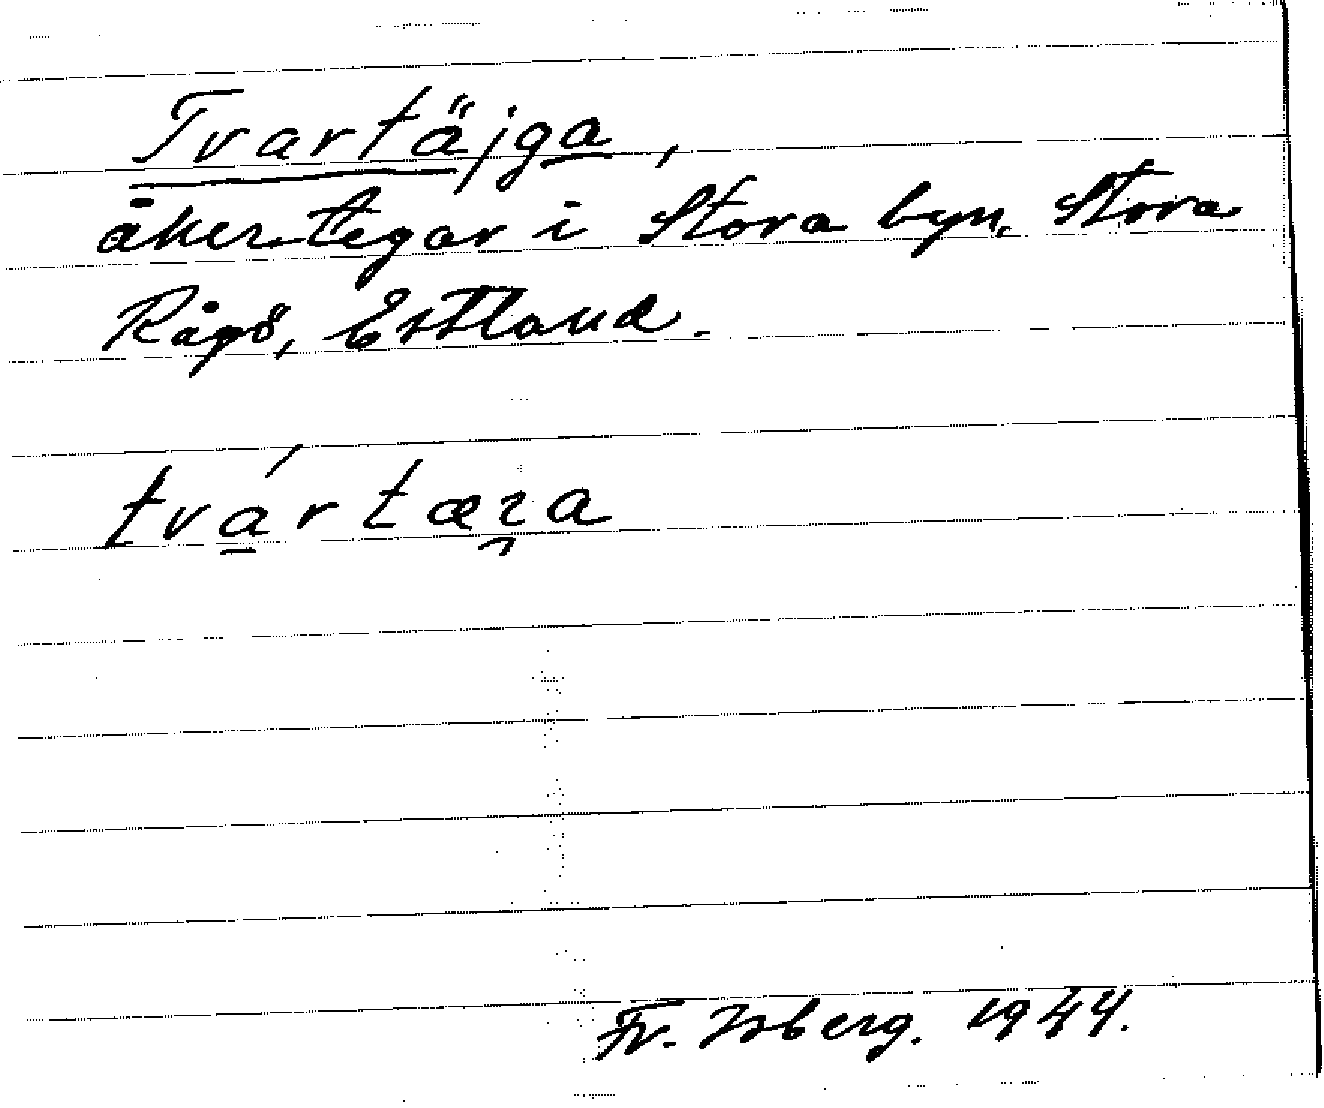 Tvartäjga,
åkertegar i Stora byn, Stora
Rågö, Estland.
tvártæꝛa
Fr. Isberg. 1944.